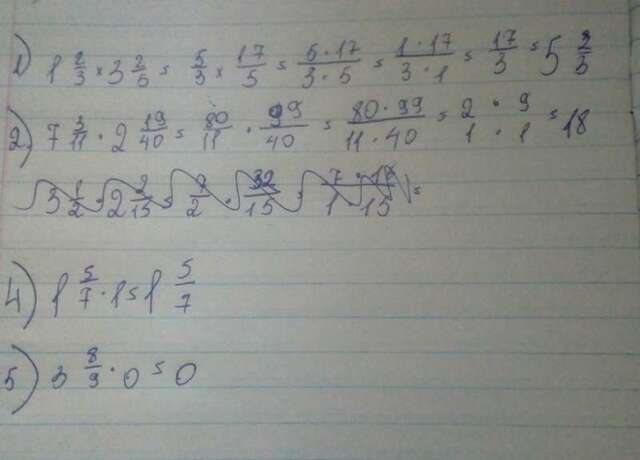 1) 1 2/3 × 3 2/5 = 5/3 × 17/5 = 5·17/3·5 = 1·17/3·1 = 17/3 = 5 2/3
2) 7 3/11 · 2 19/40 = 80/11 · 99/40 = 80·99/11·40 = 2·9/1·1 = 18
3 1/2 · 2 2/15 = 7/2 · 32/15 =
4) 1 5/7 · 1 = 1 5/7
5) 3 8/9 · 0 = 0